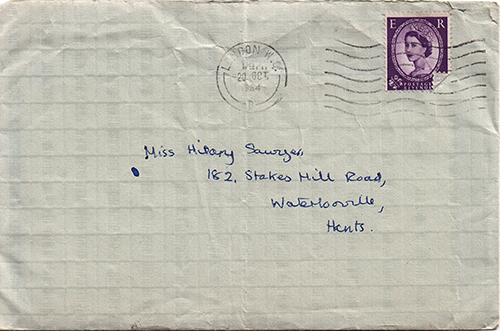 LONDON W.
20 OCT.
E R
POSTAGE
Miss Hilary Sawyer,
182, Stakes Hill Road,
Waterlooville,
Hants.